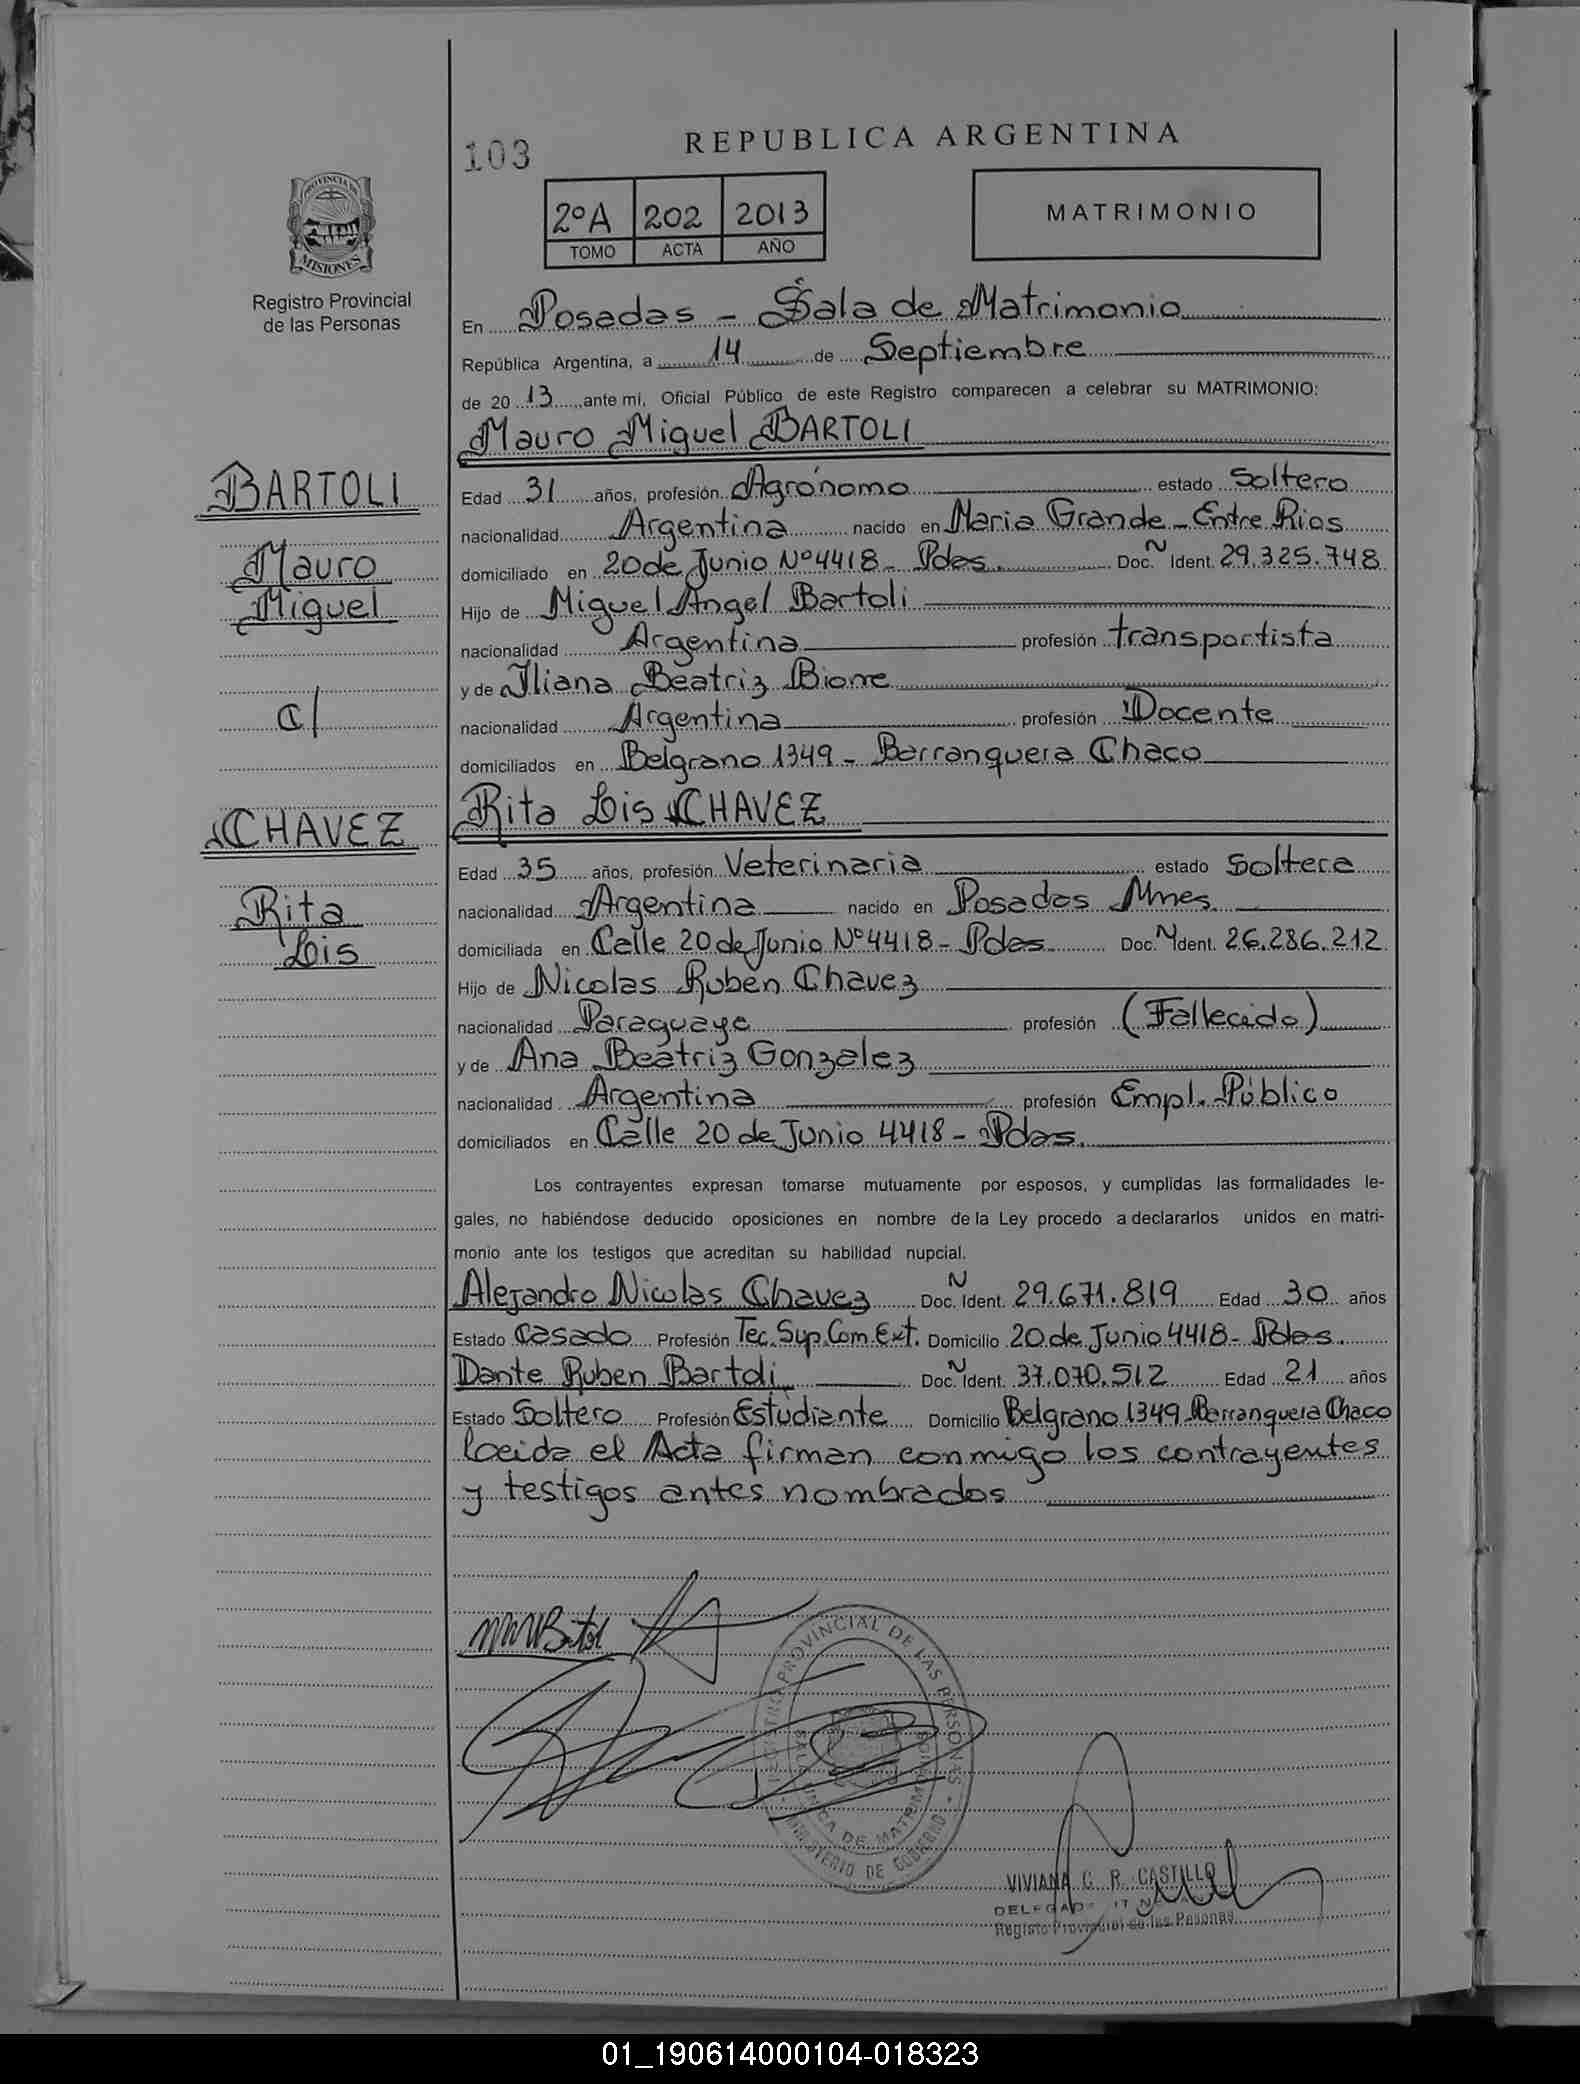 103
REPUBLICA ARGENTINA
PROVINCIA DE
MISIONES
Registro Provincial
de las Personas
2ºA 202 2013
TOMO ACTA AÑO
MATRIMONIO
En Posadas - Sala de Matrimonio
República Argentina, a 14 de Septiembre
de 20 13 ante mi, Oficial Público de este Registro comparecen a celebrar su MATRIMONIO:
Mauro Miguel BARTOLI
BARTOLI
Mauro
Miguel
c/
CHAVEZ
Rita
Lis
Edad 31 años, profesión Agrónomo estado Soltero
nacionalidad Argentina nacido en Maria Grande - Entre Rios
domiciliado en 20 de Junio Nº 4418 - Pdas. Doc. N Ident. 29.325.748
Hijo de Miguel Angel Bartoli
nacionalidad Argentina profesión transportista
y de Iliana Beatriz
nacionalidad Argentina profesión Docente
domiciliados en Belgrano 1349 - Barranquera Chaco
Rita Lis CHAVEZ
Edad 35 años, profesión Veterinaria estado Soltera
nacionalidad Argentina nacido en Posadas Mnes.
domiciliada en Calle 20 de Junio Nº 4418 - Pdas Doc. N Ident. 26.286.212
Hijo de Nicolas Ruben Chavez
nacionalidad Paraguaya profesión (Fallecido)
y de Ana Beatriz Gonzalez
nacionalidad Argentina profesión Empl. Público
domiciliados en Calle 20 de Junio 4418 - Pdas.
Los contrayentes expresan tomarse mutuamente por esposos, y cumplidas las formalidades le-
gales, no habiéndose deducido oposiciones en nombre de la Ley procedo a declararlos unidos en matri-
monio ante los testigos que acreditan su habilidad nupcial.
Alejandro Nicolas Chavez Doc. N Ident. 29.671.819 Edad 30 años
Estado Casado Profesión Tec. Sup. Com. Ext. Domicilio 20 de Junio 4418 - Pdas.
Dante Ruben Bartoli Doc. N Ident. 37.070.512 Edad 21 años
Estado Soltero Profesión Estudiante Domicilio Belgrano 1349 - Barranquera Chaco
Leida el Acta firman conmigo los contrayentes
y testigos antes nombrados
REGISTRO PROVINCIAL DE LAS PERSONAS
SALA UNICA DE MATRIMONIO
MINISTERIO DE GOBIERNO
VIVIANA C. R. CASTILLO
Registro Provincial de las Personas
01_190614000104-018323